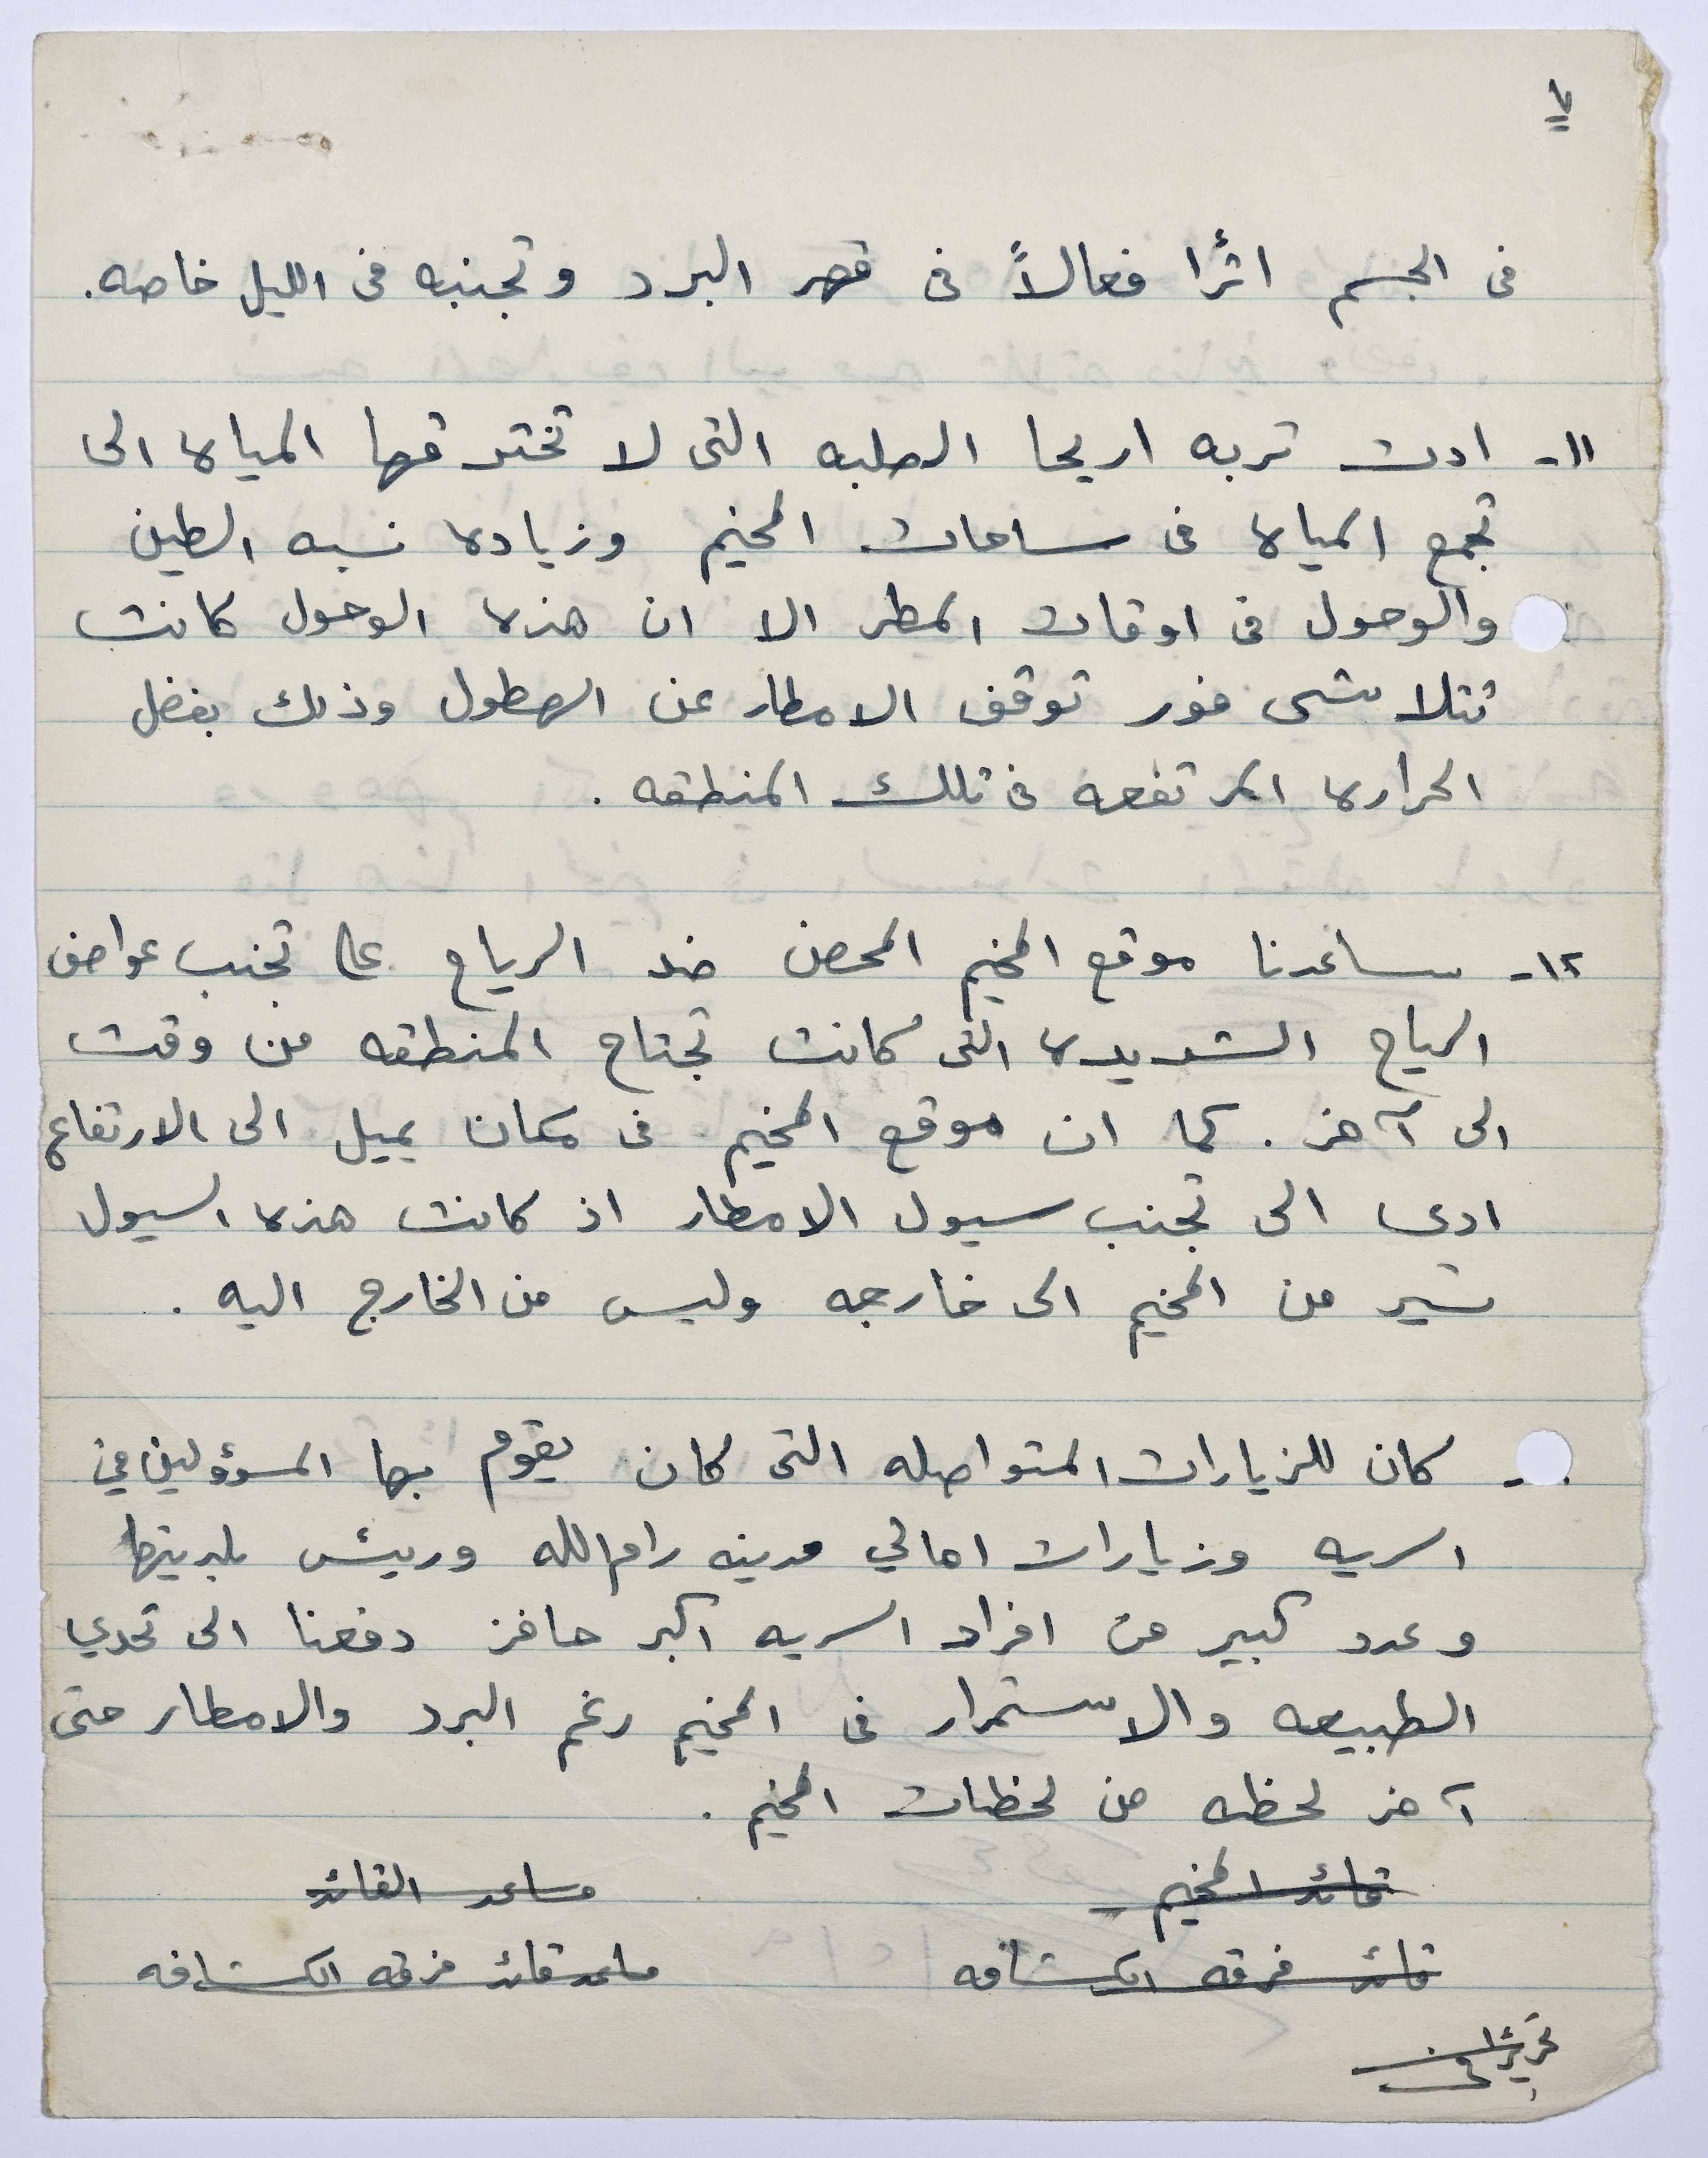 فى الجسم اثرًا فعالاً فى قهر البرد وتجنبه فى الليل خاصه.
١١- ادت تربه اريحا الصلبه التى لا تخترقها المياه الى
تجمع المياه فى ساحات المخيم وزياده نسبه الطين
والوحول فى اوقات المطر الا ان هذه الوحول كانت
تتلاشى فور توقف الامطار عن الهطول وذلك بفضل
الحراره المرتفعه فى تلك المنطقه .
١٢- ساعدنا موقع المخيم المحصن ضد الرياح على تجنب عواصف
الرياح الشديده التى كانت تجتاح المنطقه من وقت
الى آخر . كما ان موقع المخيم فى مكان يميل الى الارتفاع
ادى الى تجنب سيول الامطار اذ كانت هذه السيول
تسير من المخيم الى خارجه وليس من الخارج اليه .
- كان للزيارات المتواصله التى كان يقوم بها المسؤولين في
السريه وزيارات اهالي مدينه رام الله ورئيس بلديتها
وعدد كبير من افراد السريه اكبر حافز دفعنا الى تحدي
الطبيعه والاستمرار فى المخيم رغم البرد والامطار حتى
آخر لحظه من لحظات المخيم .
قائد المخيم مساعد القائد
قائد فرقه الكشافه مساعد قائد فرقه الكشافه
تحريرًا فى